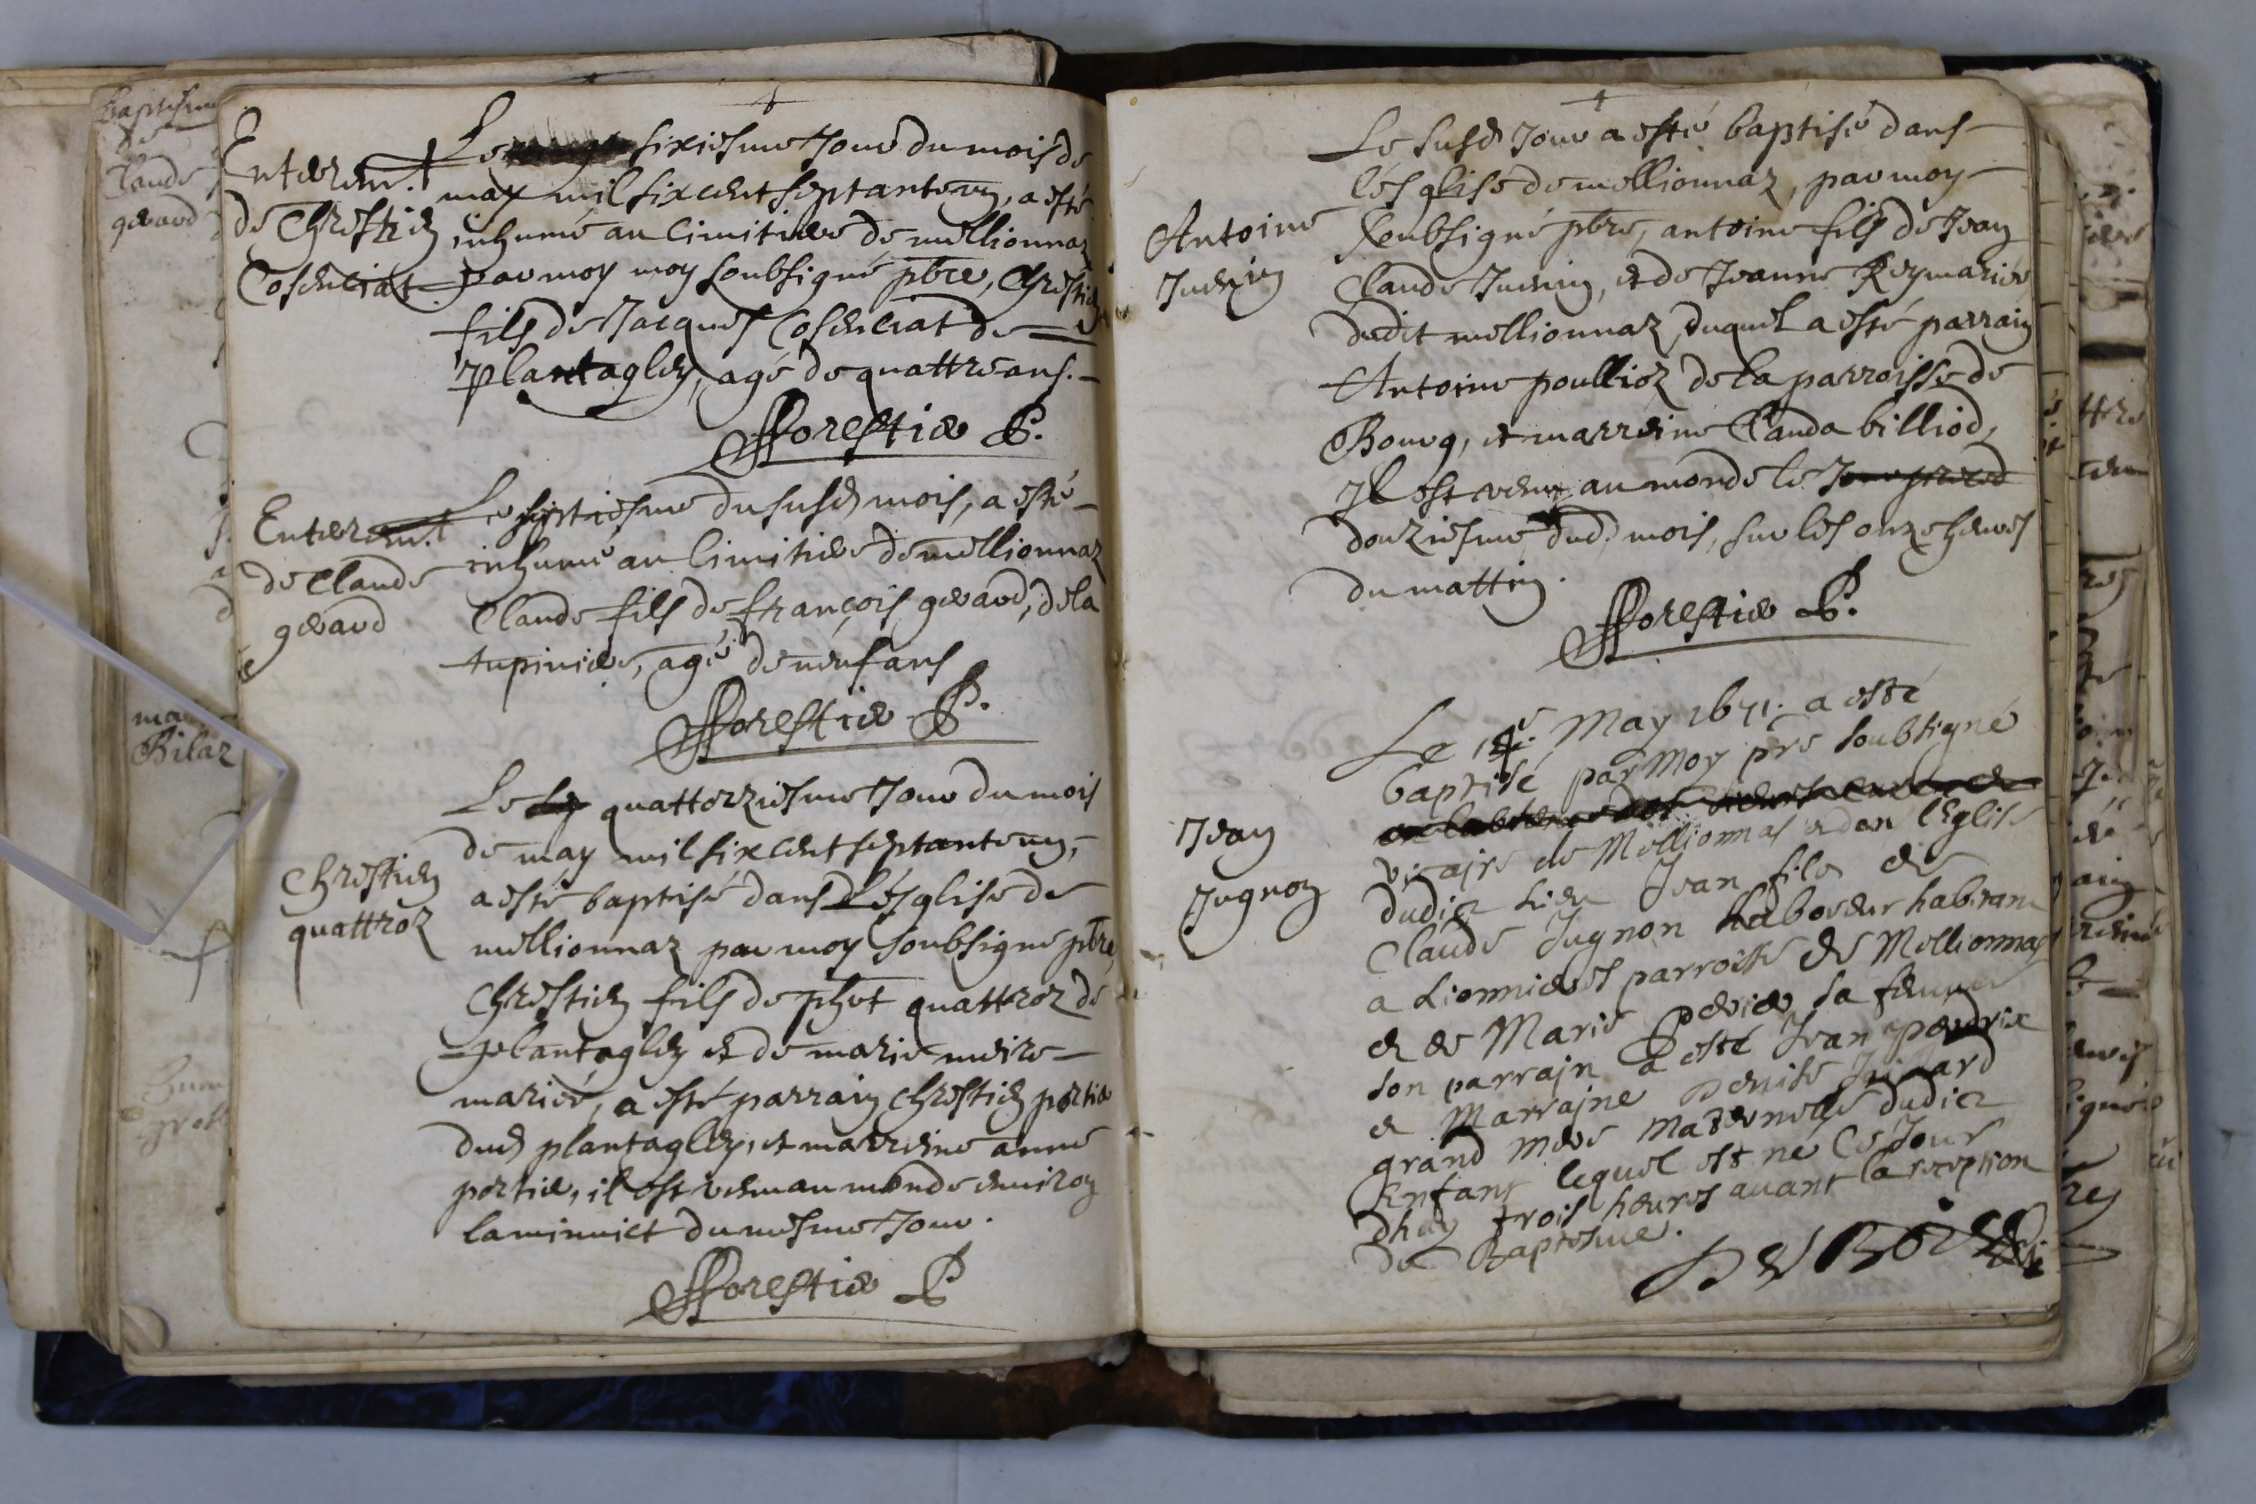 Enterem.t
de Chrestien
Cosenciat
Le sixiesme Jour du mois de
may mil six cent septante un, a esté
inhumé au cimitiere de mellionnaz
par moy moy soubsigné pbre, Chrestien
fils de Jacques Cosenciat de
plantagley, agé de quattre ans.
fforestier P.
Enterem.t
de Claude
gerard
Le septiesme du susd mois, a esté
inhumé au Cimitiere de mellionnaz
Claude fils de françois gerard, de la
tupiniere, agé de neuf ans
fforestier P.
Chrestien
quattroz
Le quattorziesme Jour du mois
de may mil six cent septante un,
a esté baptisé dans L'ésglise de
mellionnaz par moy soubsigné pbre,
Chrestien fils de phot quattroz de
plantagley et de marie
mariés, a esté parrain Chrestien portier
dud plantagley, et marreine anne
portier, il est venu au monde environ
la minuict du mesme Jour.
fforestier P
Antoine
Juenin
Le susd Jour a esté baptisé dans
l'ésglise de mellionnaz, par moy
soubsigné pbre, antoine fils de Jean
Claude Juenin, et de Jeanne Rey mariés
dudit mellionnaz, duquel a esté parrain
Antoine poullioz de la parroisse de
Bourg, et marreine Clauda billiod,
Il est venu au monde le Jour preced
douziesme dud. mois, sur les onze heures
du mattin.
fforestier P.
Jean
Jugnon
Le 14e. May 1671. a esté
baptisé par Moy pre soubsigné
vicaire de Mellionnas et dan l'Eglise
dudict Lieu Jean fils de
Claude Jugnon Laboureur habitant
a Lionnieres parroisse de Mellionnas
et de Marie perier sa femme
son parrain a esté Jean perdrix
et Marraine Denise
grand mere maternelle dudict
Enfant lequel est né Ce Jour
dhuy trois heures avant la reception
du Baptesme.